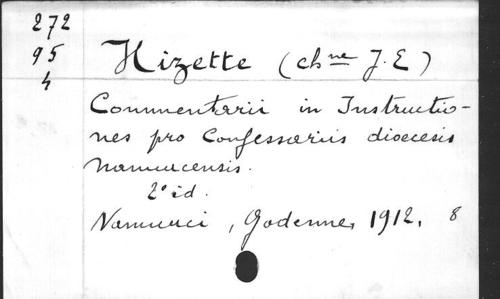 272
95
4
Hizette (chne J. E)
Commentarii in Instructio-
nes pro Confessariis dioecesis
Namurcensis.
2° éd.
Namurci, Godenne, 1912. 8